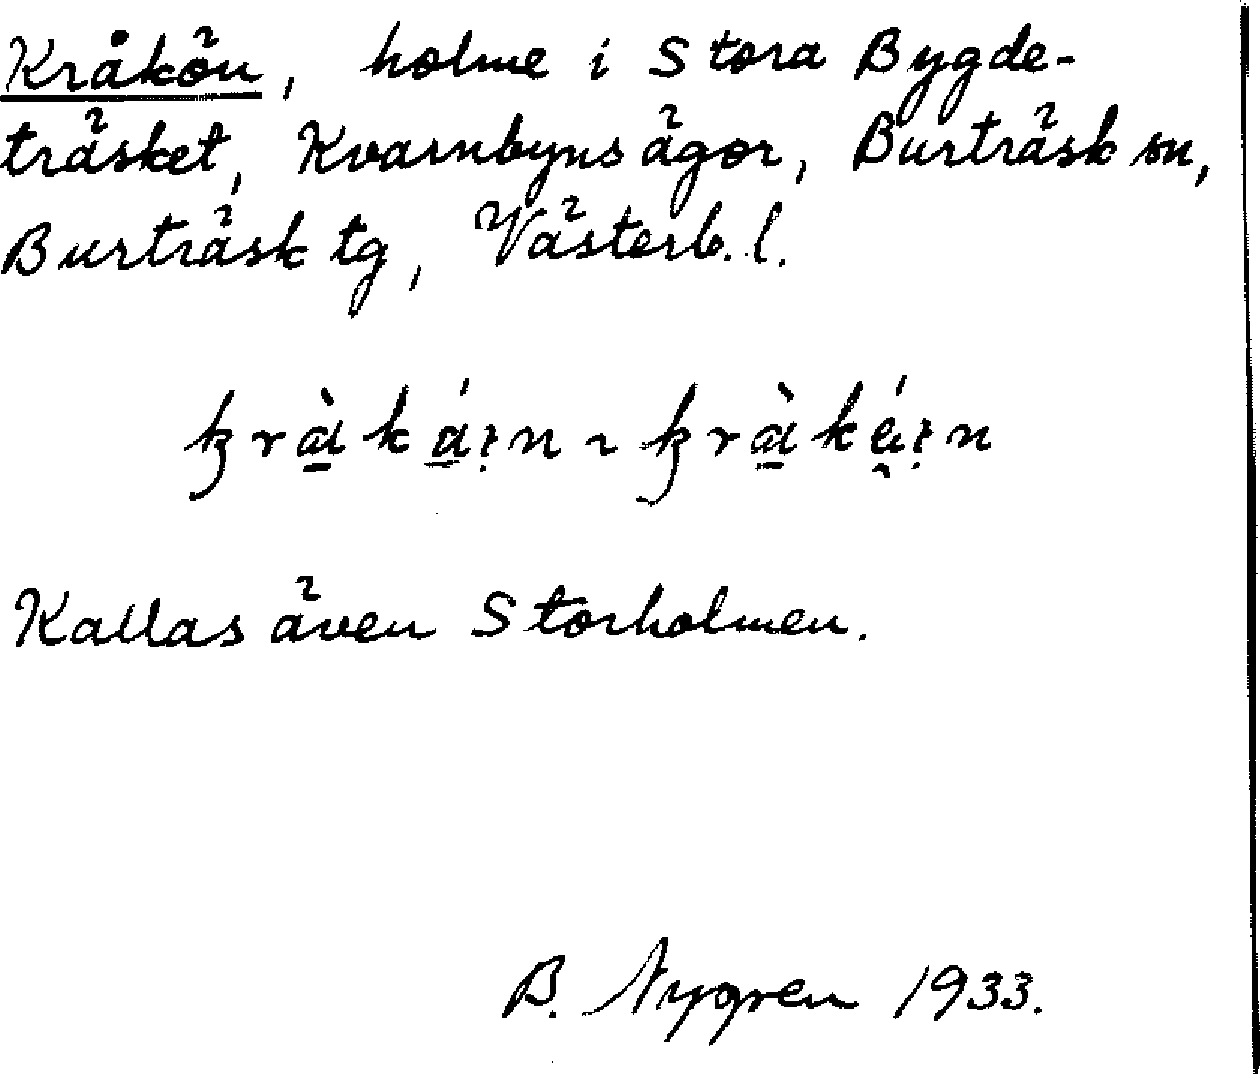 Kråkön, holme i Stora Bygde-
träsket, Kvarnbyns ägor, Burträsk sn,
Burträsk tg, Västerb. l.
Kallas även Storholmen.
B. Nygren 1933.